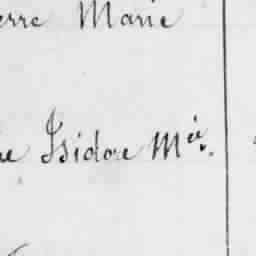 erre Marie
ne Isidore M^ie.